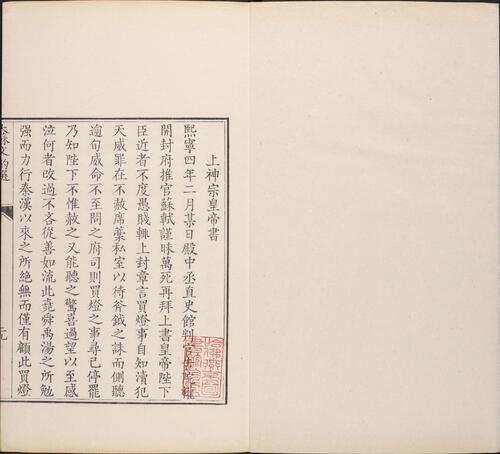 上神宗皇帝書
熙寧四年二月某日殿中丞直史館判官告院權
開封府推官蘇軾謹昧萬死再拜上書皇帝陛下
臣近者不度愚賤輒上封章言買燈事自知瀆犯
天威罪在不赦席藁私室以待斧鉞之誅而側聽
逾旬威命不至問之府司則買燈之事尋已停罷
乃知陛下不惟赦之又能聽之驚喜過望以至感
泣何者改過不吝從善如流此堯舜禹湯之所勉
强而力行秦漢以來之所絕無而僅有顧此買燈